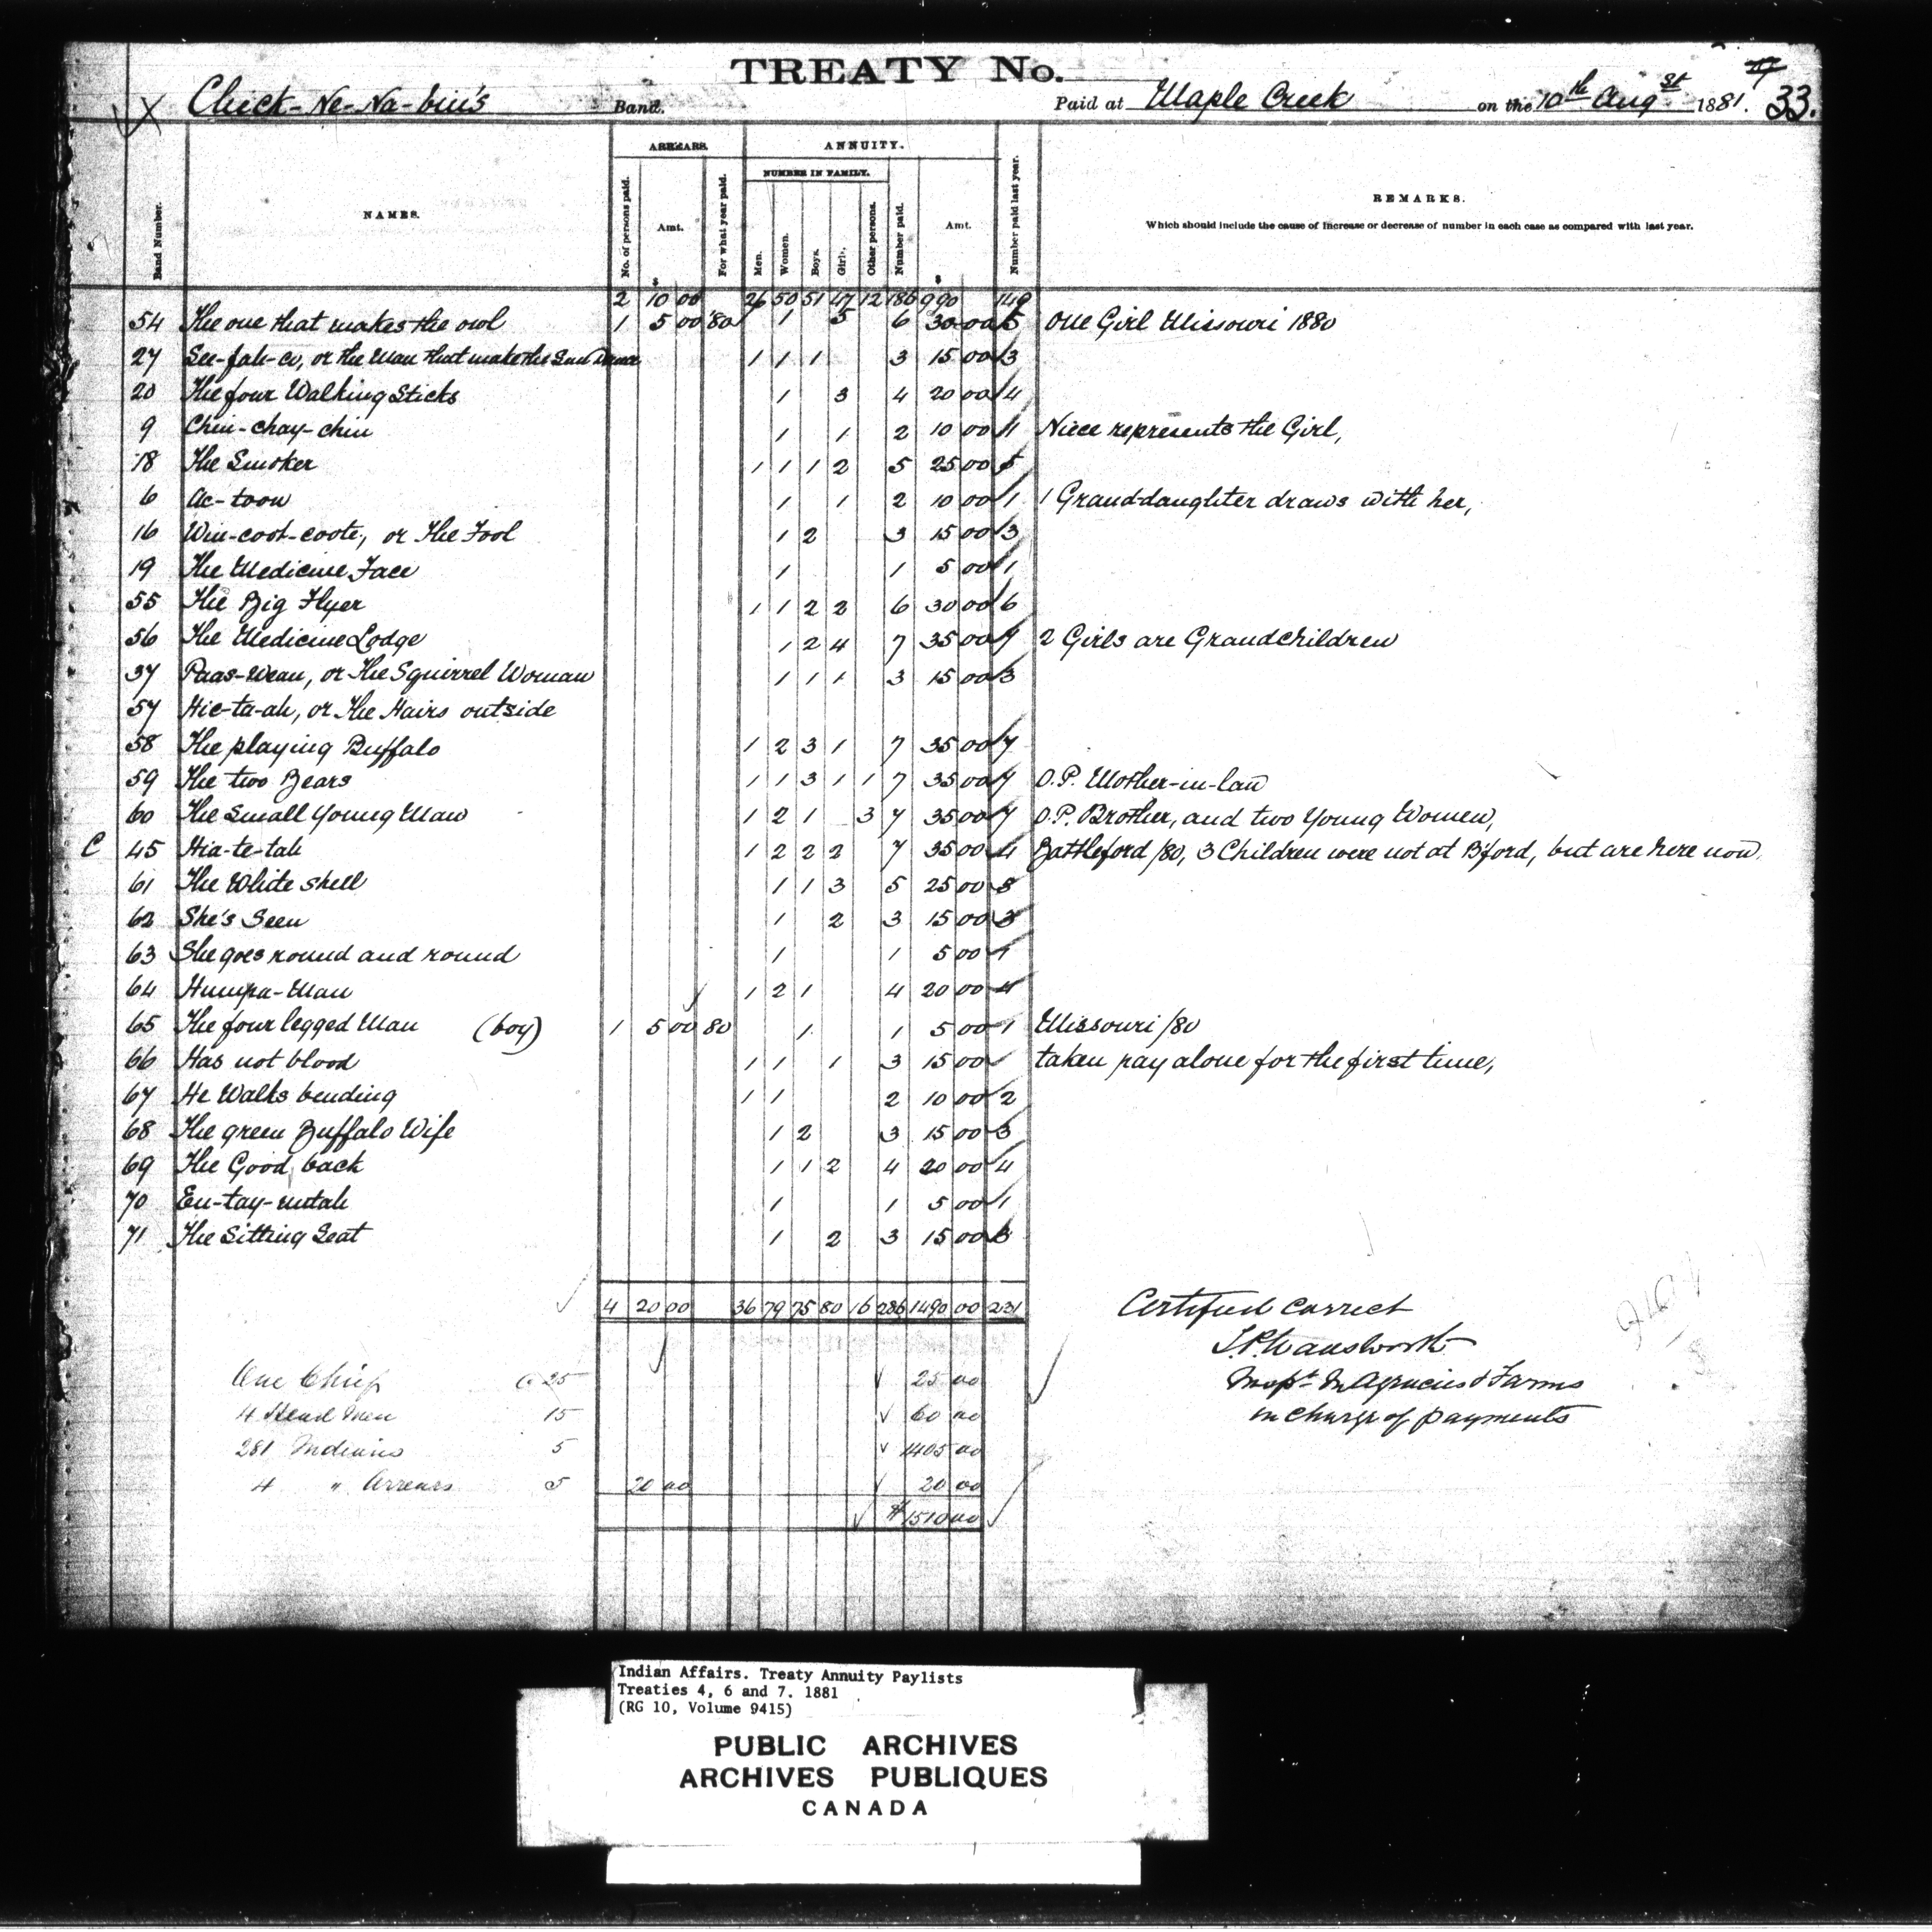 TREATY No.
Chick-Ne-Na-bin's Band. Paid at Maple Creek on the 10th Augst 1881. 33.
ARREARS. ANNUITY.
NUMBER IN FAMILY.
Band Number. NAMES. No. of persons paid. Amt. For what year paid. Men. Women. Boys. Girls. Other persons. Number paid. Amt. Number paid last year. REMARKS.
Which should include the cause of increase or decrease of number in each case as compared with last year.
$ $
2 10 00 26 50 51 47 12 186 990 149
54 The one that makes the owl 1 5 00 80 1 5 6 30 00 5 One Girl Missouri 1880
27 See-fah-co, or the Man that make the Sun Dance 1 1 1 3 15 00 3
20 The four Walking Sticks 1 3 4 20 00 4
9 Chin-chay-chin 1 1 2 10 00 1 Niece represents the Girl,
18 The Smoker 1 1 1 2 5 25 00 5
6 Ac-toow 1 1 2 10 00 1 1 Grand-daughter draws with her,
16 Win-coot-coote, or The Fool 1 2 3 15 00 3
19 The Medicine Face 1 1 5 00 1
55 The Big Flyer 1 1 2 2 6 30 00 6
56 The Medicine Lodge 1 2 4 7 35 00 7 2 Girls are Grandchildren
37 Paas-Wean, or The Squirrel Woman 1 1 1 3 15 00 3
57 Hic-ta-ah, or The Hairs outside
58 The playing Buffalo 1 2 3 1 7 35 00 7
59 The two Bears 1 1 3 1 1 7 35 00 7 O.P. Mother-in-law
60 The Small Young Man 1 2 1 3 7 35 00 7 O.P. Brother, and two Young Women,
C 45 Hia-te-tah 1 2 2 2 7 35 00 4 Battleford /80, 3 Children were not at B'ford, but are here now.
61 The White shell 1 1 3 5 25 00 8
62 She's Seen 1 2 3 15 00 3
63 She goes round and round 1 1 5 00 1
64 Humpa-Man 1 2 1 4 20 00 4
65 The four legged Man (boy) 1 5 00 80 1 1 5 00 1 Missouri /80
66 Has not blood 1 1 1 3 15 00 taken pay alone for the first time,
67 He Walks bending 1 1 2 10 00 2
68 The green Buffalo Wife 1 2 3 15 00 3
69 The Good back 1 1 2 4 20 00 4
70 En-tay-mtah 1 1 5 00 1
71 The Sitting Seat 1 2 3 15 00 3
4 20 00 36 79 75 80 16 286 1490 00 231 Certified Correct
One Chief @ 25 25 00
4 Head Men 15 60 00 in charge of payments
281 Indians 5 1405 00
4 " Arrears 5 20 00 20 00
$1510 00
Indian Affairs. Treaty Annuity Paylists
Treaties 4, 6 and 7. 1881
(RG 10, Volume 9415)
PUBLIC ARCHIVES
ARCHIVES PUBLIQUES
CANADA